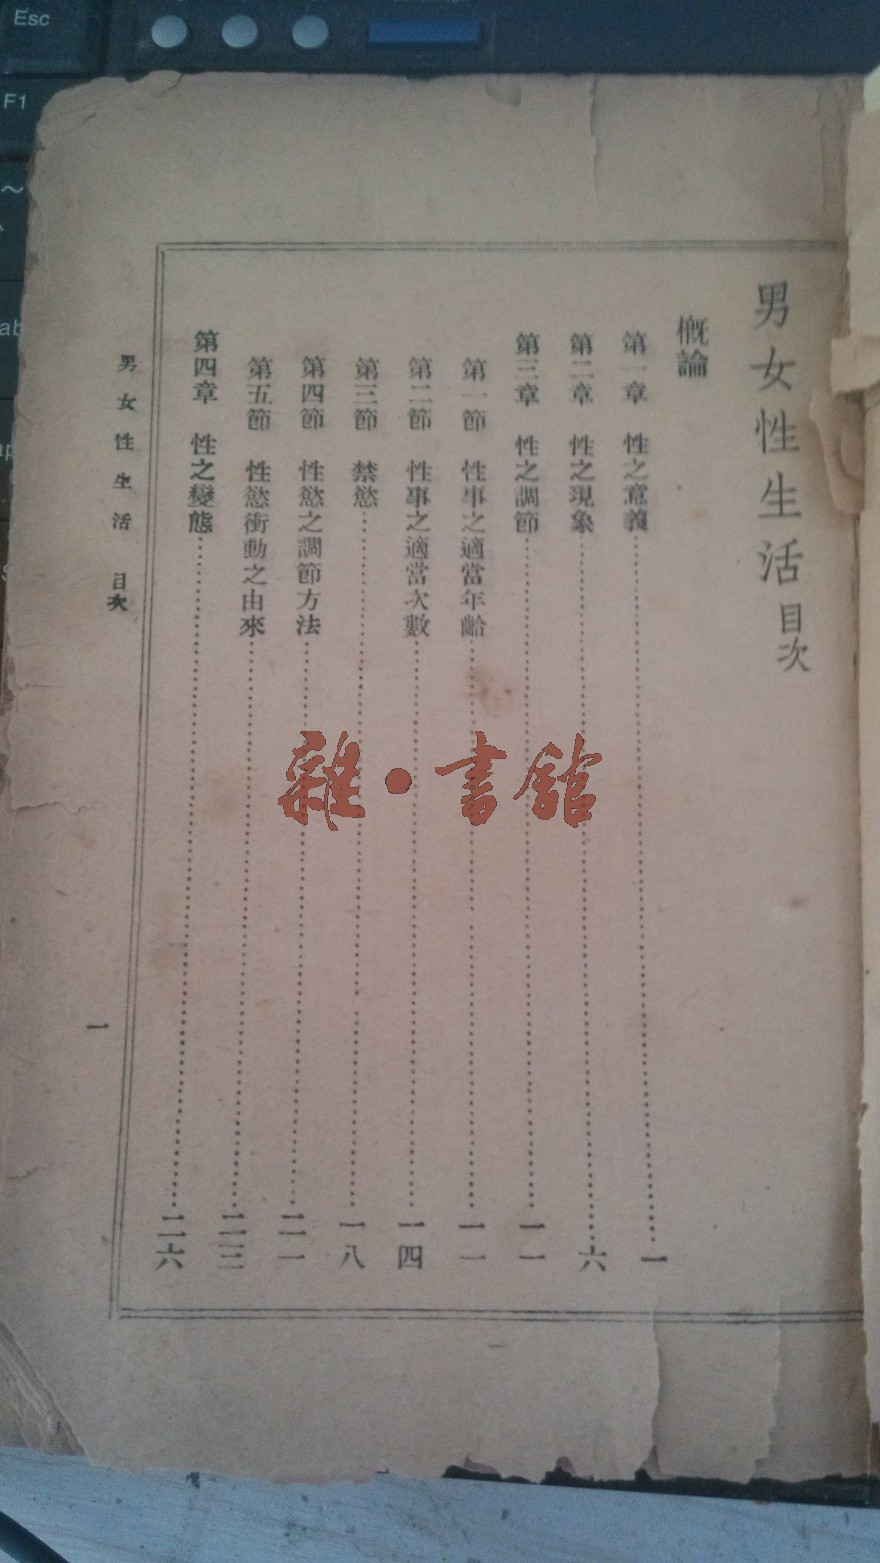 男女性生活 目次
概論
第一章 性之意義……一
第二章 性之現象……六
第三章 性之調節……一一
第一節 性事之適當年齡……一一
第二節 性事之適當次數……一四
第三節 禁慾……一八
第四節 性慾之調節方法……二一
第五節 性慾衝動之由來……二三
第四章 性之變態……二六
男女性生活 目次
一
雜·書館
Esc
F1